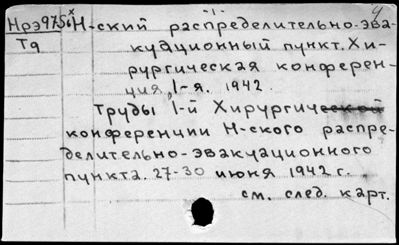 Нрэ9756 Н-ский распределительно-эва-
Тд
куационный пункт. Хи-
рургическая конферен-
ция, 1-я. 1942.
Труды 1-й Хирургической
конференции Н-ского распре-
делительно-эвакуационного
пункта. 27-30 июня 1942 г.
см. след. карт.